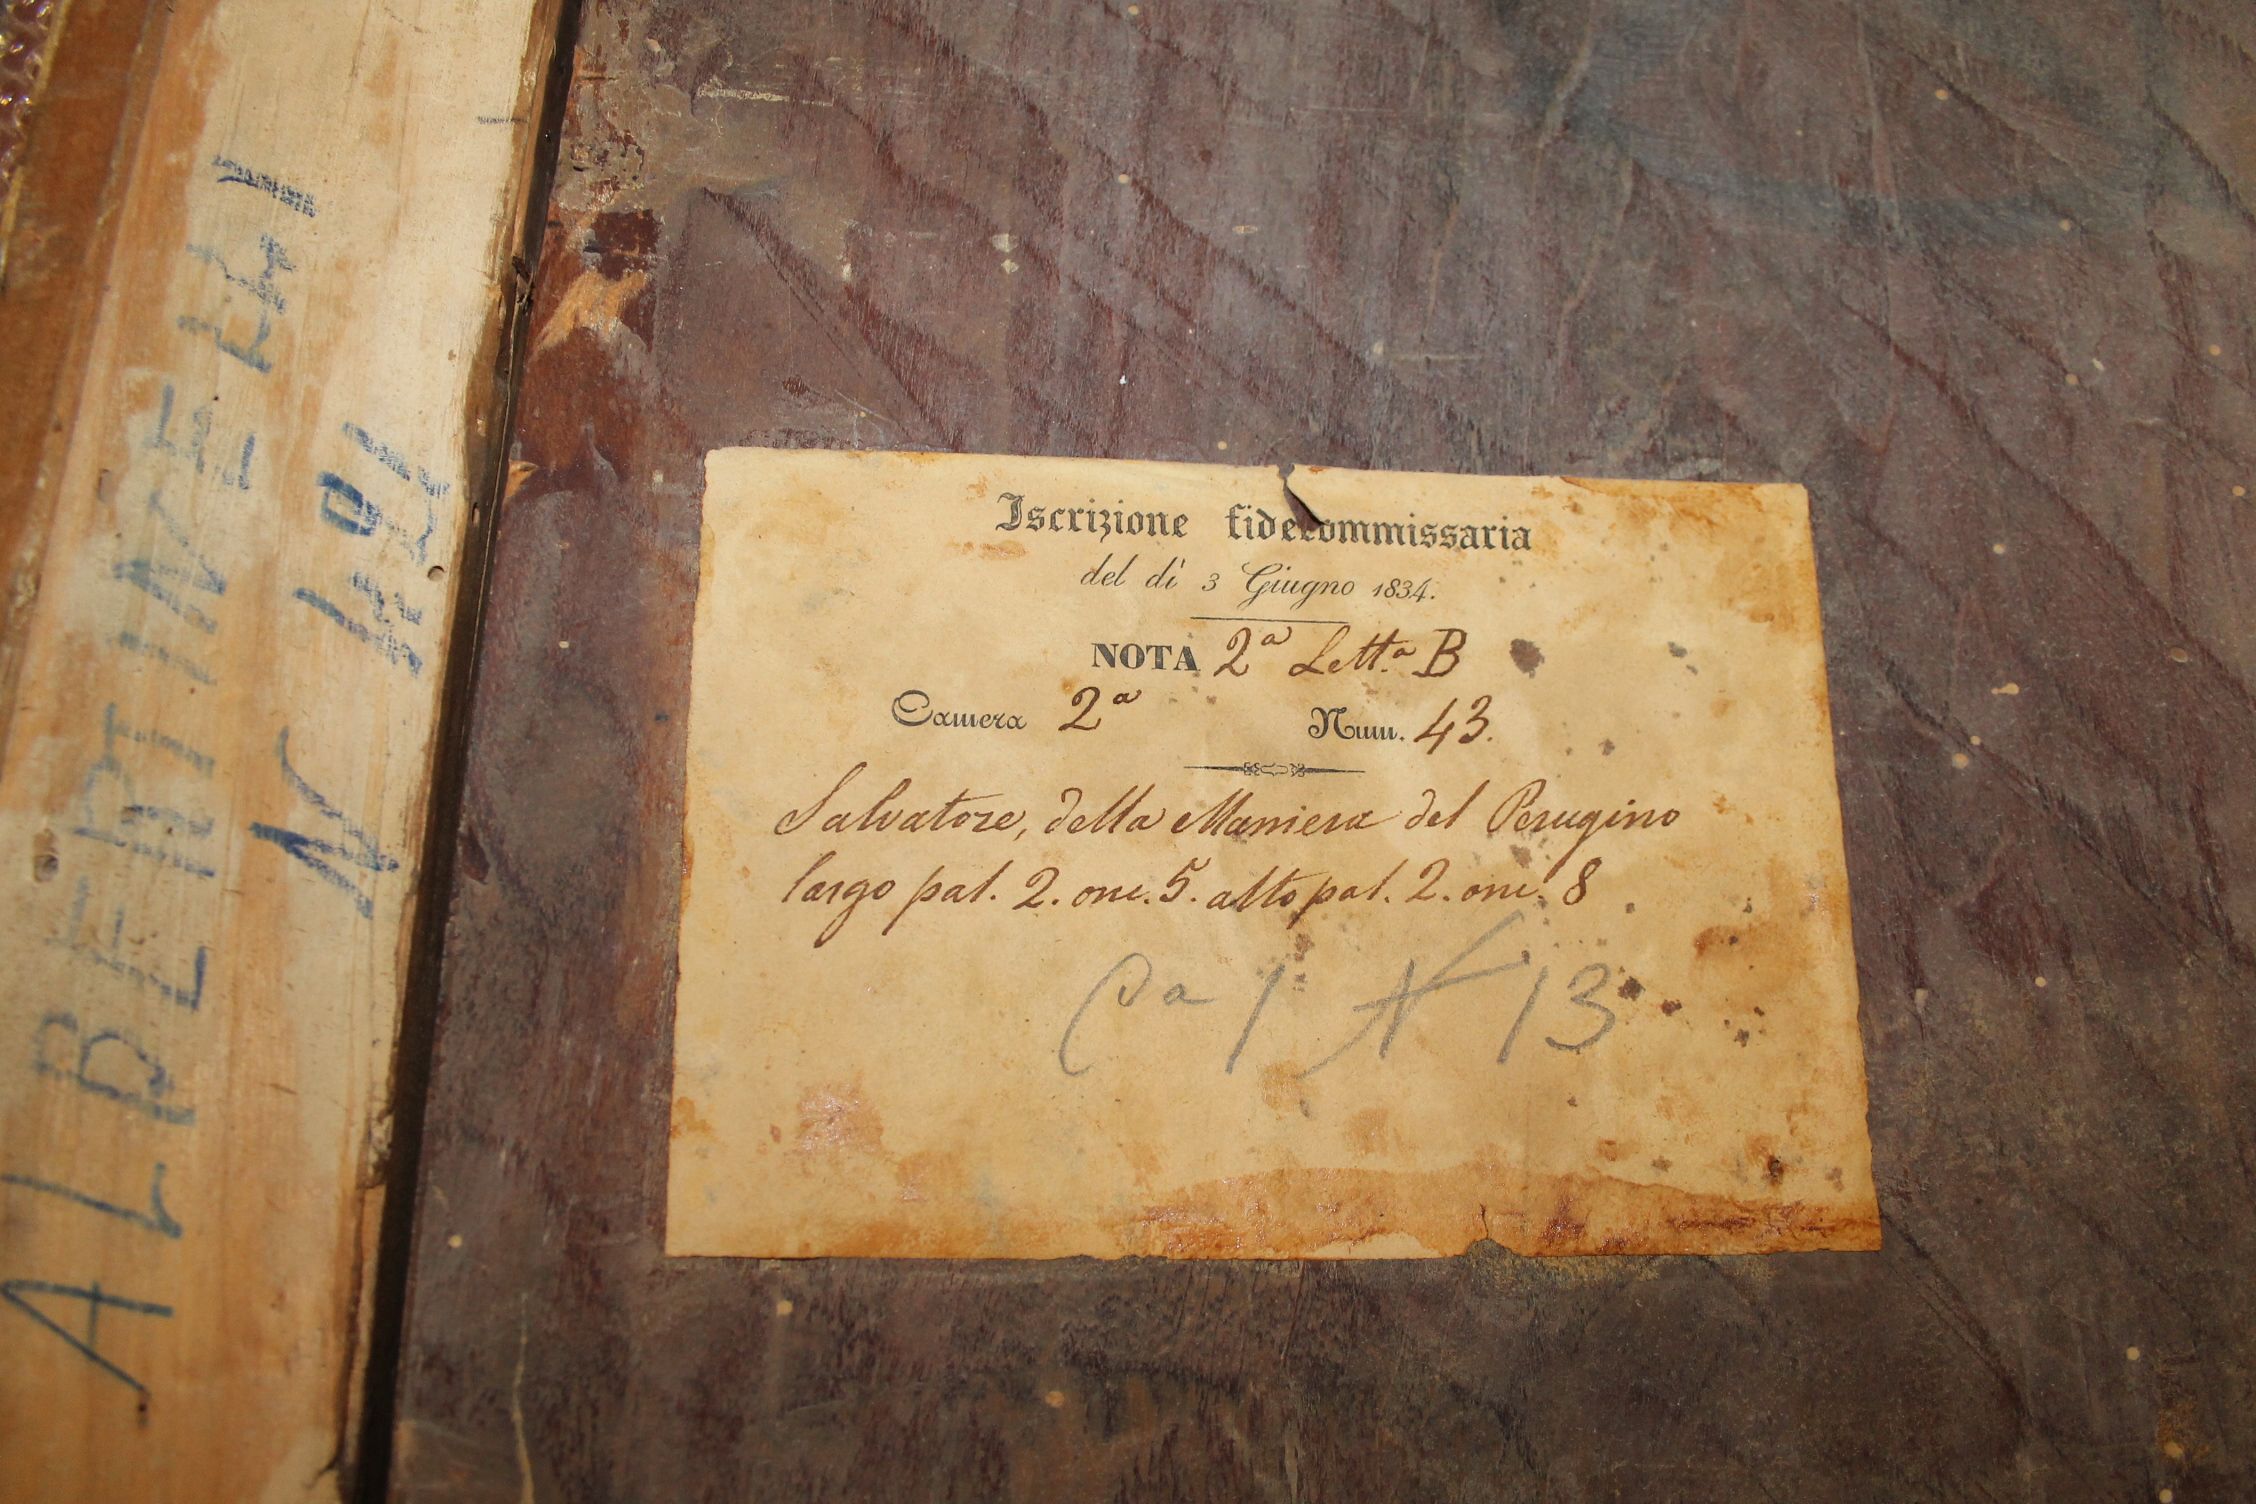 Iscrizione fidecommissaria
del dì 3 Giugno 1834.
NOTA 2ª Lett.ª B
Camera 2ª Num. 43.
Salvatore, della Maniera del Perugino
largo pal. 2. onc. 5. alto pal. 2. onc. 8
Pa 1ª N 13
ALBERTINELLI
N